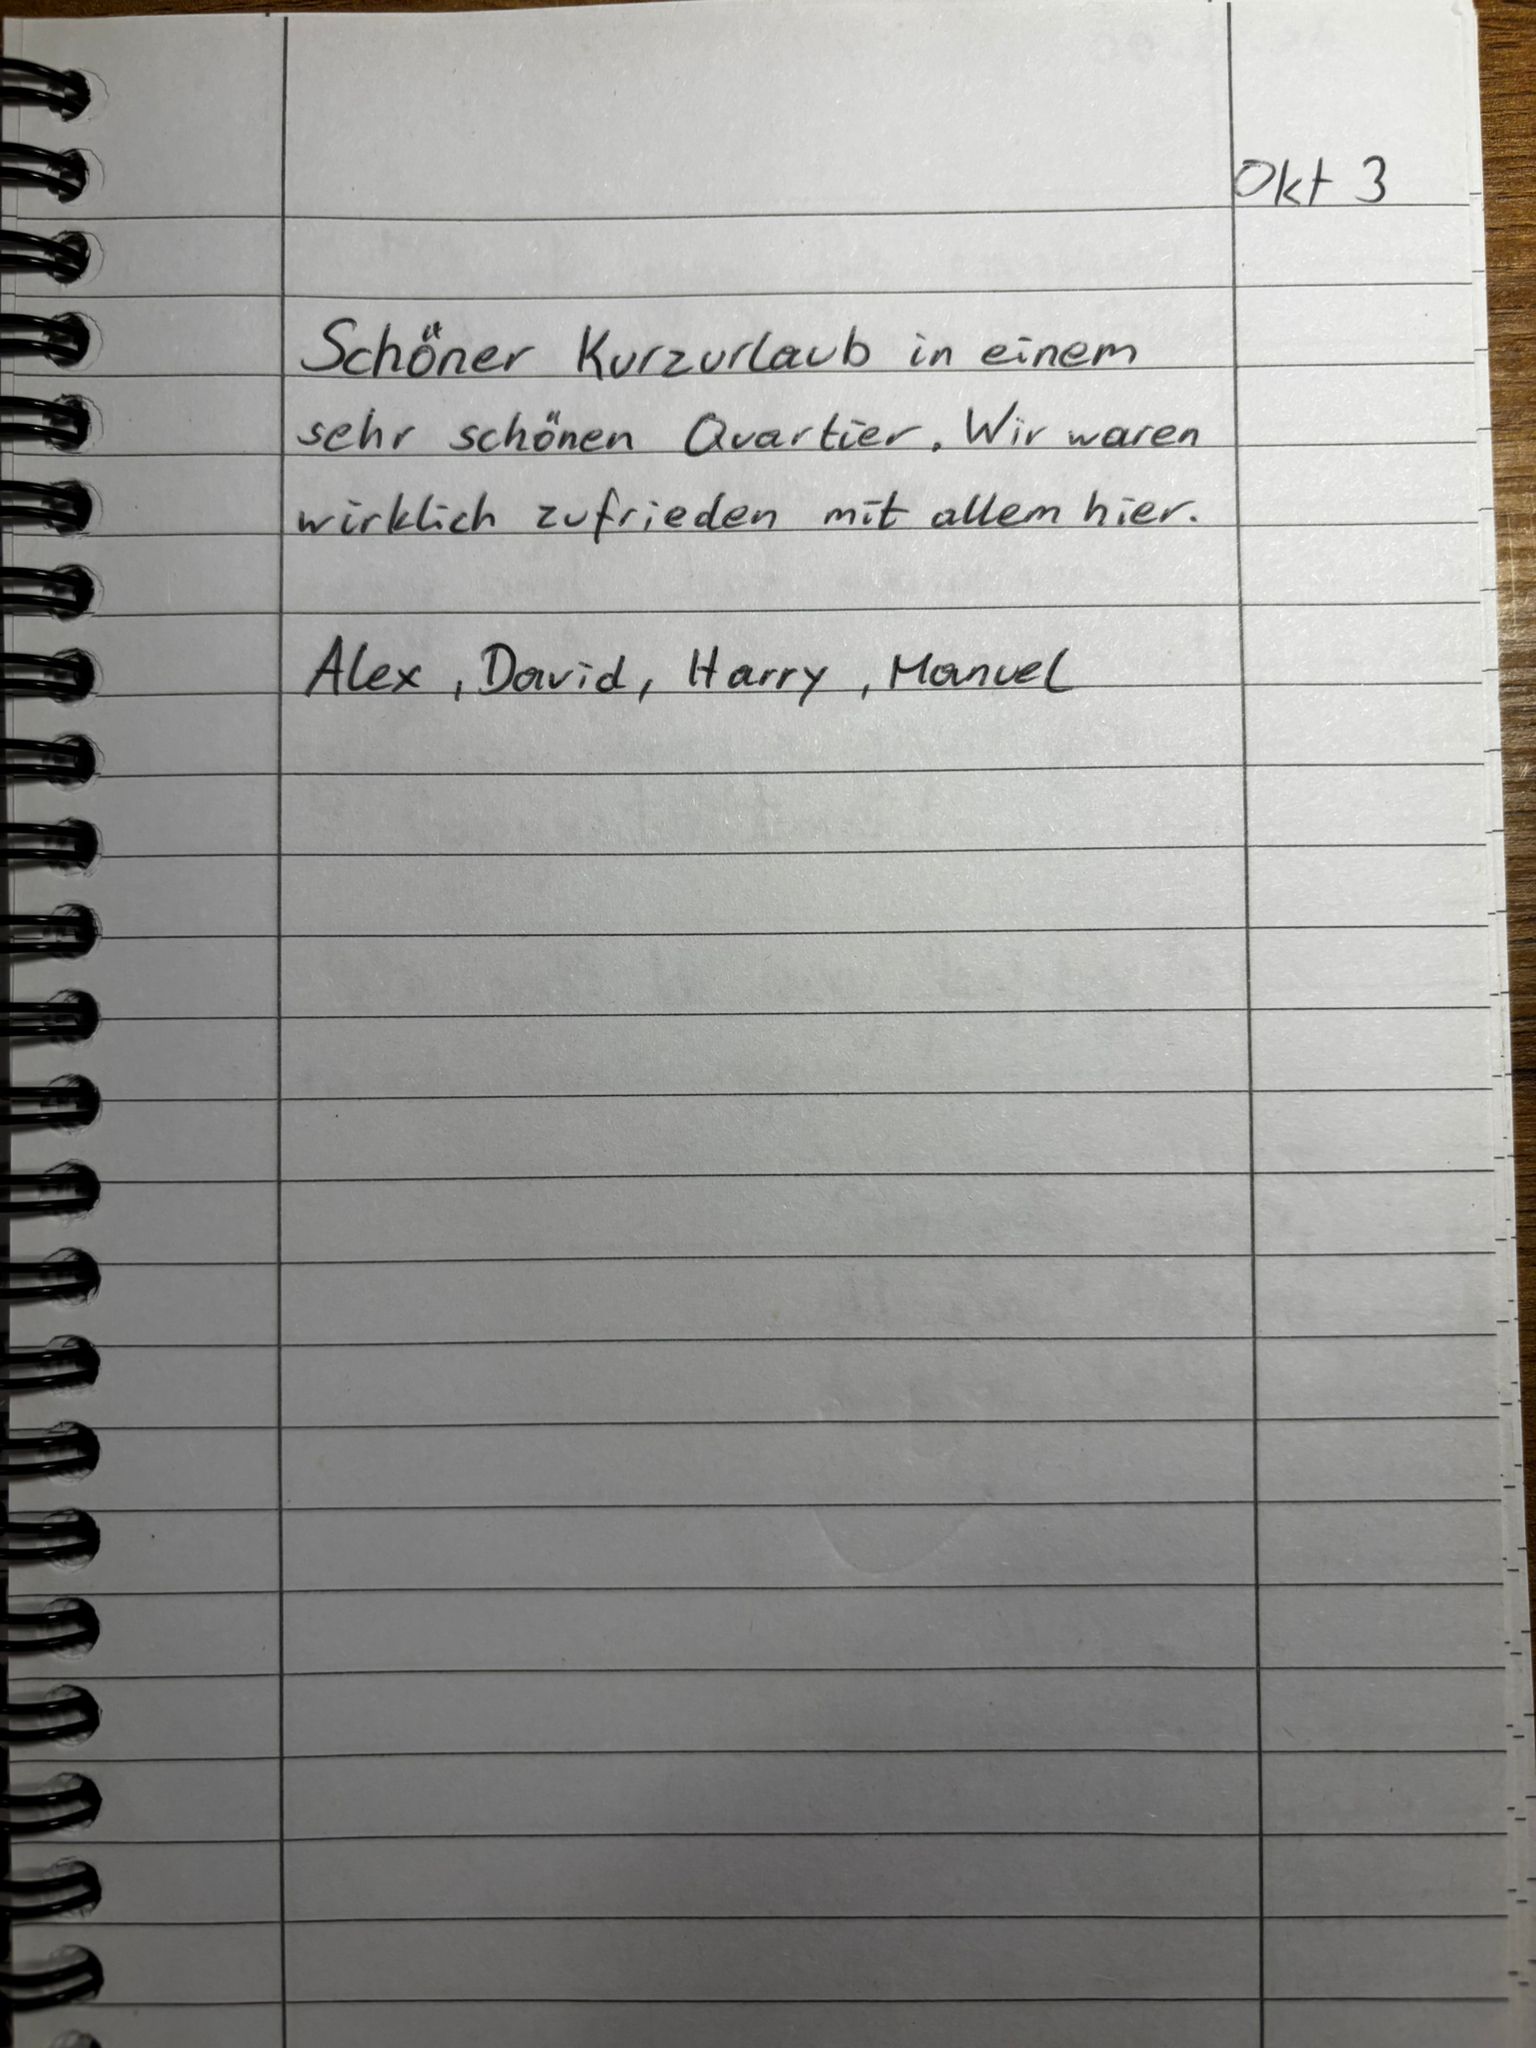 Okt 3
Schöner Kurzurlaub in einem
sehr schönen Quartier. Wir waren
wirklich zufrieden mit allem hier.
Alex, David, Harry, Manuel